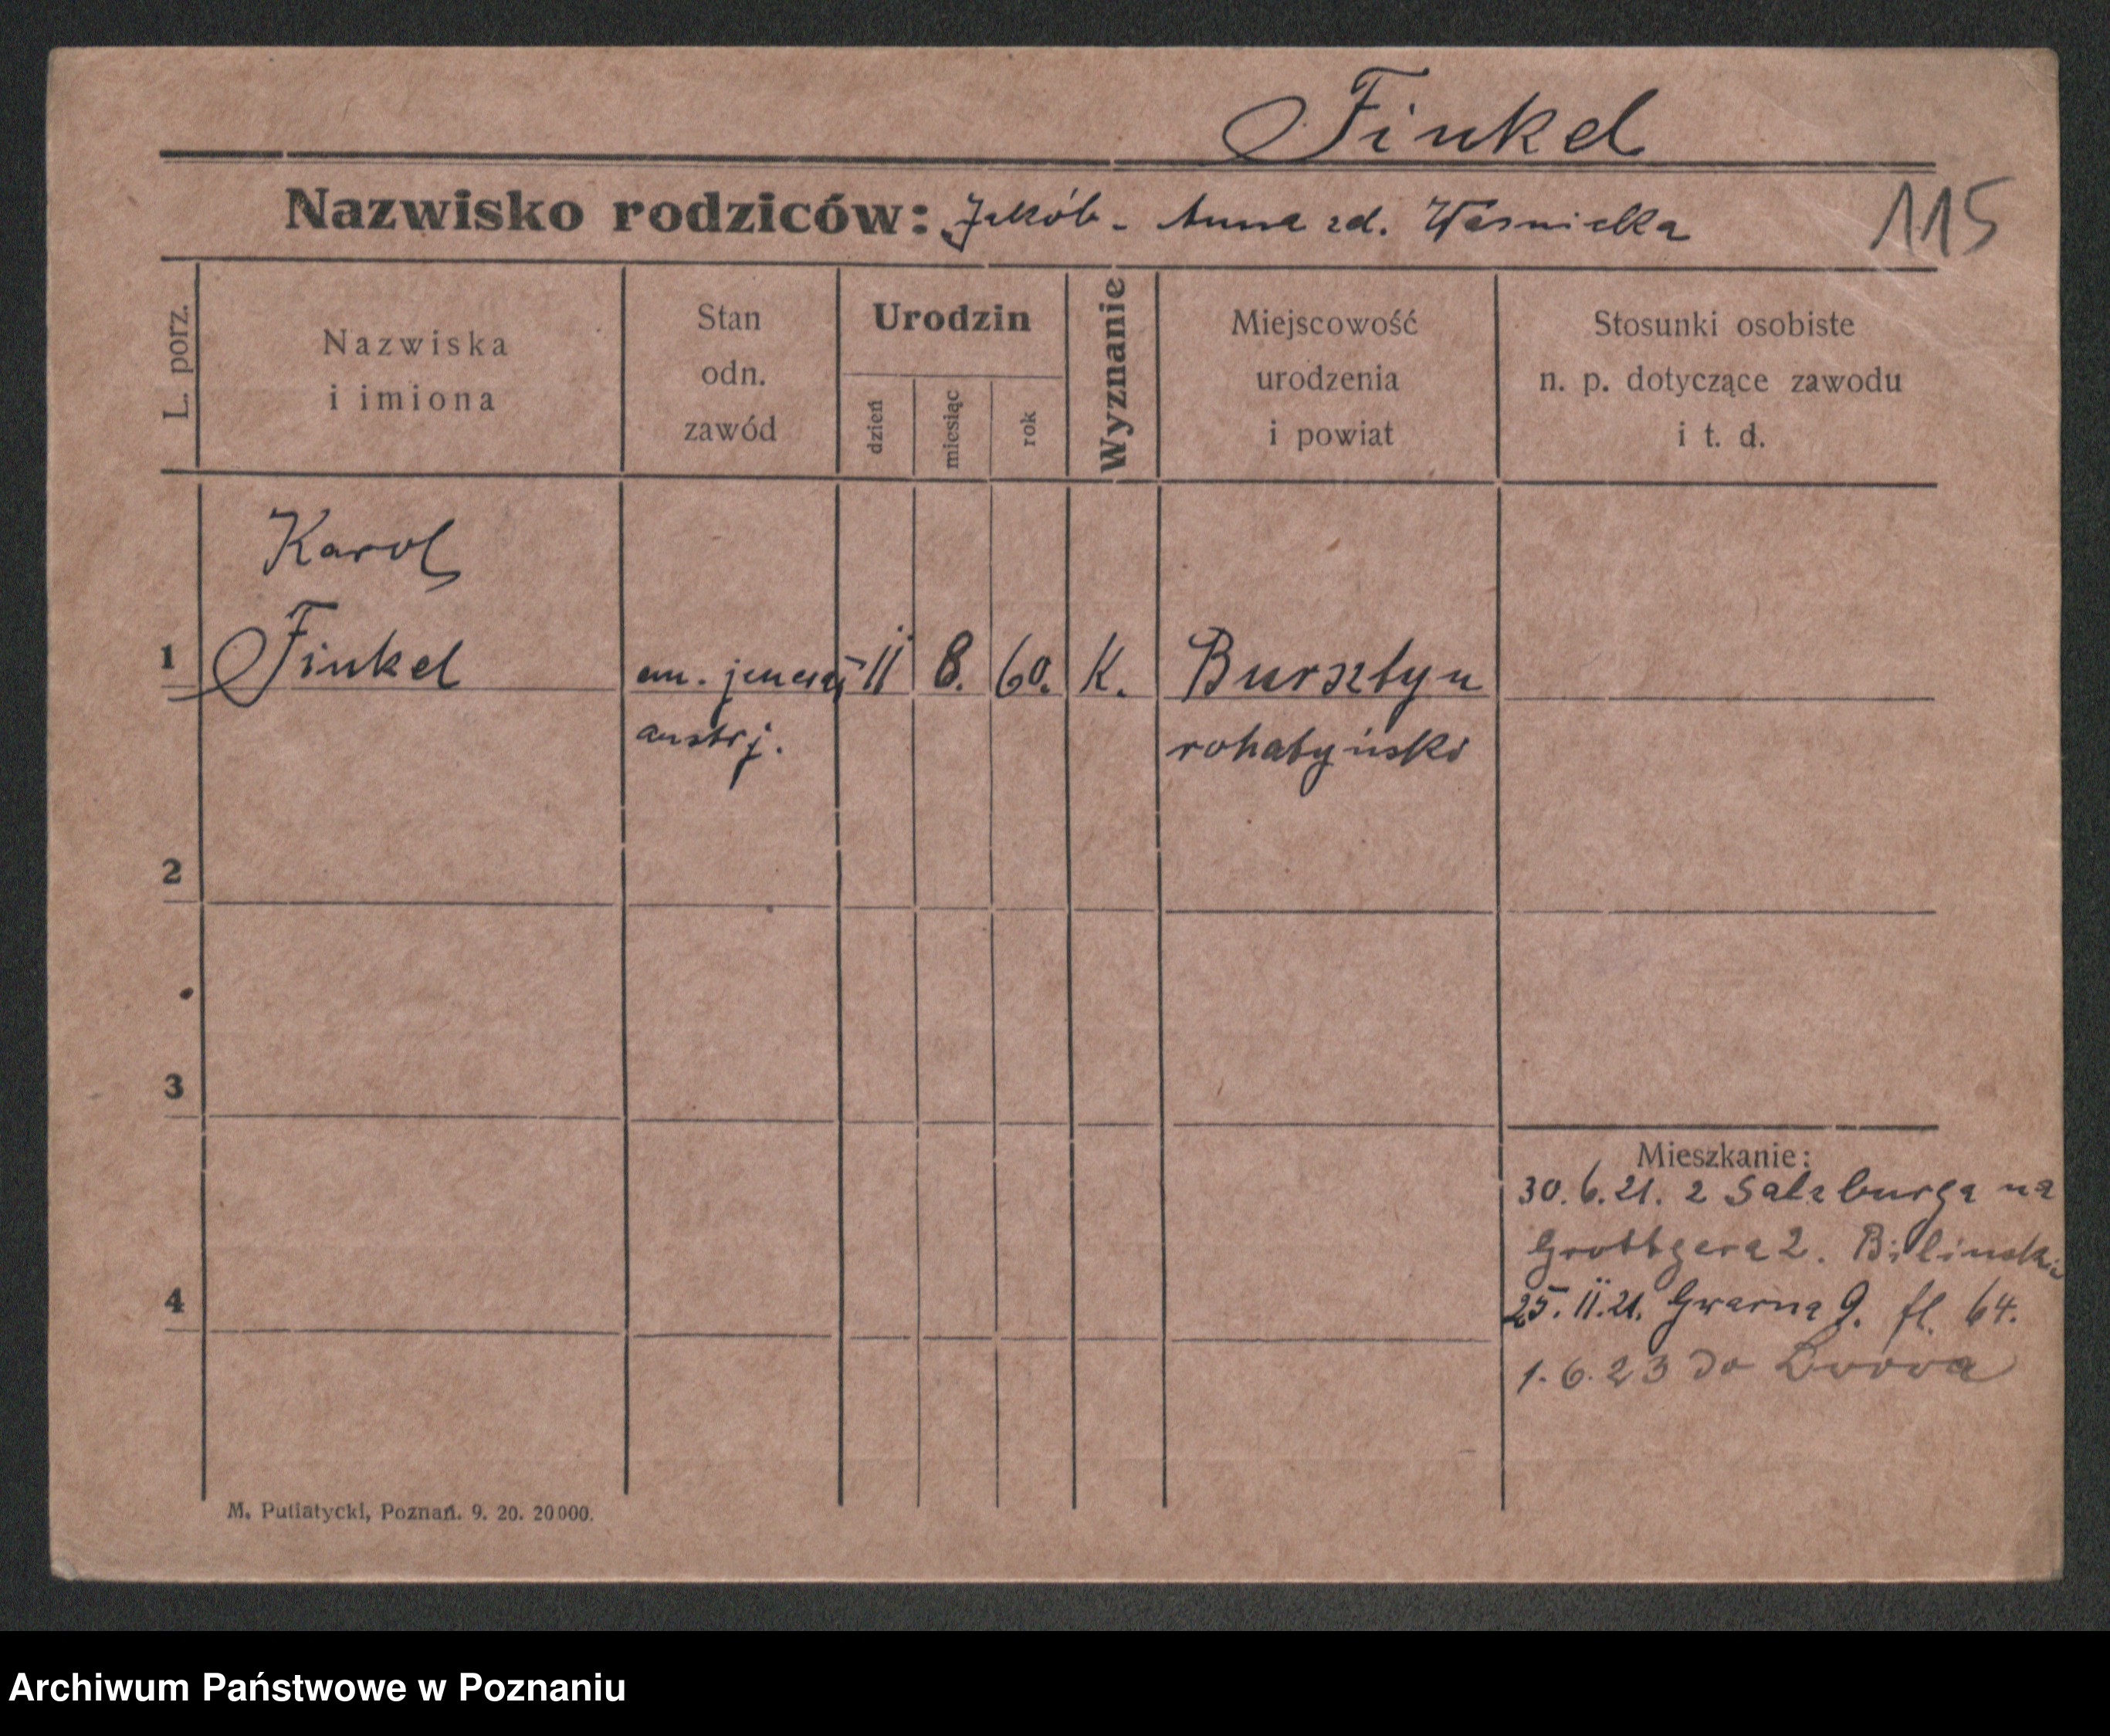 Finkel
Nazwisko rodziców: Jakób - Anna zd. Waśnicka
115
L. porz.
Nazwiska
i imiona
Stan
odn.
zawód
Urodzin
dzień
miesiąc
rok
Wyznanie
Miejscowość
urodzenia
i powiat
Stosunki osobiste
n. p. dotyczące zawodu
i t. d.
Karol
1 Finkel em. jenerał 11 8. 60. K. Bursztyn
austrj. rohatyński
2
3
4
Mieszkanie:
30.6.21. z Salzburga na
Grottgera 2. Bilinski
25.11.21. Gwarna 9. fl. 64.
1.6.23 do Lwowa
M. Putiatycki, Poznań. 9. 20. 20000.
Archiwum Państwowe w Poznaniu